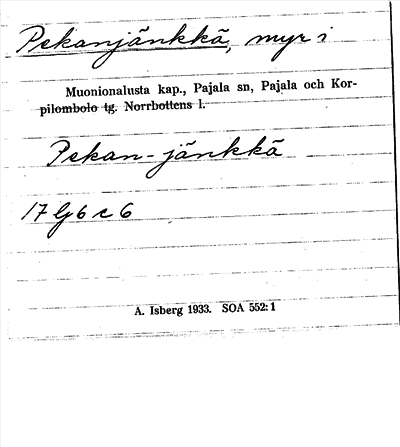 Pekanjänkkä, myr i
Muonionalusta kap., Pajala sn, Pajala och Kor-
pilombolo tg. Norrbottens l.
Pekan-jänkkä
A. Isberg 1933. SOA 552:1